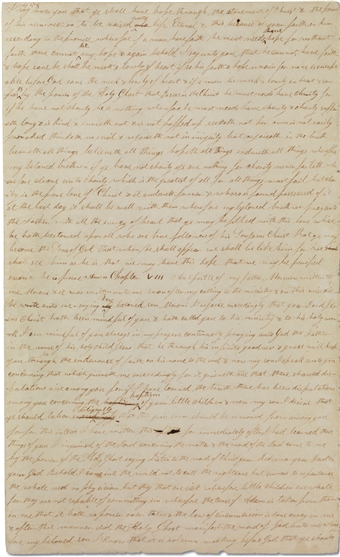 you that ye shall have hope through the atonement of Christ & the power
of his resurrection to be raised unto life Eternal & this because of your faith in him
according to the promise wherefore if a man have faith he must needs have hope for without
faith there cannot be any hope & again behold I say unto you that he cannot have faith
& hope save he shall be meek & lowly of heart if so his faith & hope is vain for none is accept
able before God save the meek & lowly of heart & if a man be meek & lowly in heart & con
fess by the power of the Holy Ghost that Jesus is the Christ he must needs have charity for
if he have not charity he is nothing wherefore he must needs have charity & charity suffer
eth long & is kind & envieth not & is not puffed up seeketh not her own is not easily
provoked thinketh no evil & rejoiceth not in iniquity but rejoiceth in the truth
beareth all things believeth all things hopeth all things endureth all things wherefore
my beloved brethren if ye have not charity ye are nothing for charity never faileth where
fore cleave unto charity which is the greatest of all for all things must fail but char
ity is the pure love of Christ & it endureth forever & whoso is found possessed of it
at the last day it shall be well with them wherefore my beloved brethren pray unto
the Father with all the energy of heart that ye may be filled with this love which
he hath bestowed upon all who are true followers of his Son Jesus Christ that ye
become the Sons of God that when he shall appear we shall be like him for we
shall see him as he is that we may have this hope that we may be purified
Chapter VIII
written unto
me Moroni & it was written unto me soon after my calling to the ministry & on this wise did
he write unto me saying my beloved son Moroni I rejoice exceedingly that your Lord Jes
us Christ hath been mindful of you & hath called you to his ministry & to his holy work
I am mindful of you always in my prayers continually praying unto God the Father
in the name of his holy child Jesus that he through his infinite goodness & grace will keep
you through the endurance of faith on his name to the end & now my son I speak unto you
concerning that which grieveth me exceedingly for it grieveth me that there should dis
putations rise among you for if I have learned the truth there has been disputation
among you concerning the baptism of your little children & now my son I desire that
ye should labor diligently that this gross error should be removed from among you
for this intent I have written this for immediately after I had learned these
things of you I inquired of the Lord concerning the matter & the word of the Lord came to me
by the power of the Holy Ghost saying listen to the words of Christ your Redeemer your Lord &
your God behold I came into the world not to call the righteous but sinners to repentance
the whole need no physician but they that are sick wherefore little children are whole
for they are not capable of committing sin wherefore the curse of Adam is taken from them
in me that it hath no power over them & the law of circumcision is done away in me
& after this manner did the Holy Ghost manifest the word of God unto me where
fore my beloved son I know that it is solemn mockery before God that ye should